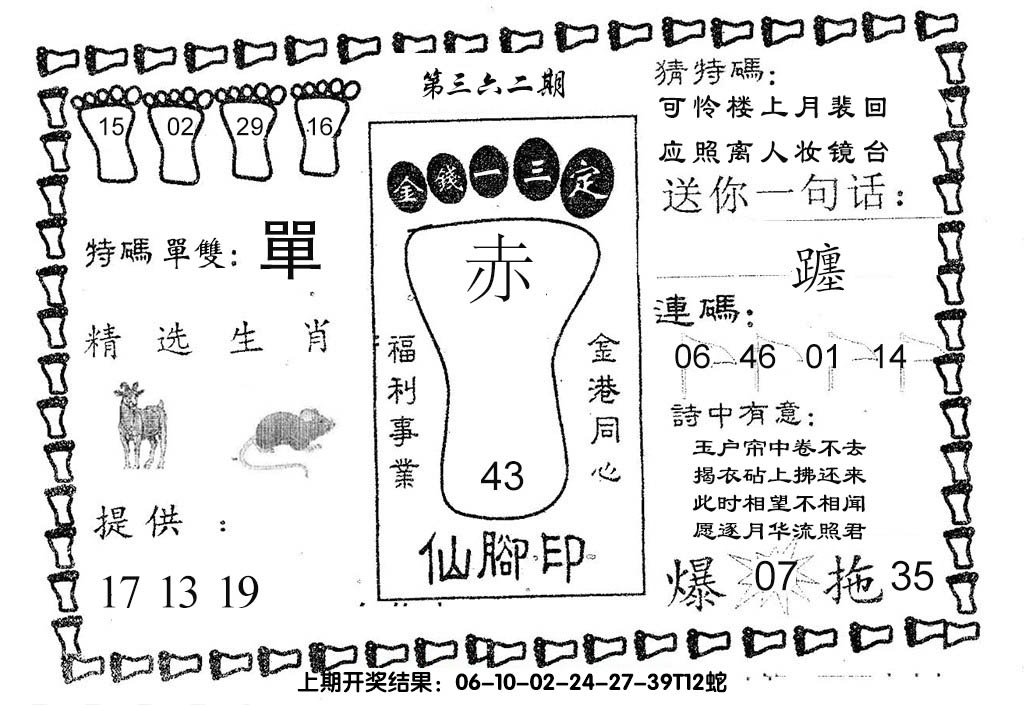 第三六二期
15 02 29 16
特碼單雙: 單
精选生肖
提供 :
17 13 19
金錢一三定
赤
福利事業
金港同心
43
仙腳印
猜特碼:
可怜楼上月裴回
应照离人妆镜台
送你一句话:
躔
連碼:
06 46 01 14
詩中有意:
玉户帘中卷不去
捣衣砧上拂还来
此时相望不相闻
愿逐月华流照君
爆 07 拖 35
上期开奖结果: 06-10-02-24-27-39T12蛇